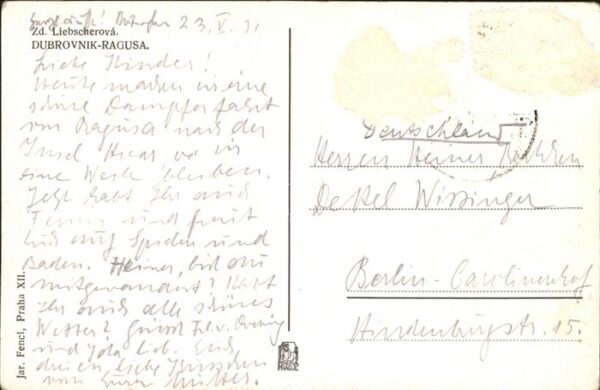 23. V. 31
Zd. Liebscherová.
DUBROVNIK-RAGUSA.
Liebe Kinder!
Heute machen wir eine
schöne Dampferfahrt
von Ragusa nach der
Insel wo wir
eine Woche bleiben.
Jetzt habt Ihr auch
Ferien und freut
Euch auf Spielen und
Baden. Heiner, bist du
mitgewandert? Habt
Ihr auch alle schönes
Wetter? Grüsst Frl. v.
und lieb. Euch
dreien liebe Grüsse
von Eurer Mutter.
Jar. Fencl, Praha XII.
Deutschland
Herren Heiner
Detlef Wissinger
Berlin-Carolinenhof
Hindenburgstr. 15.